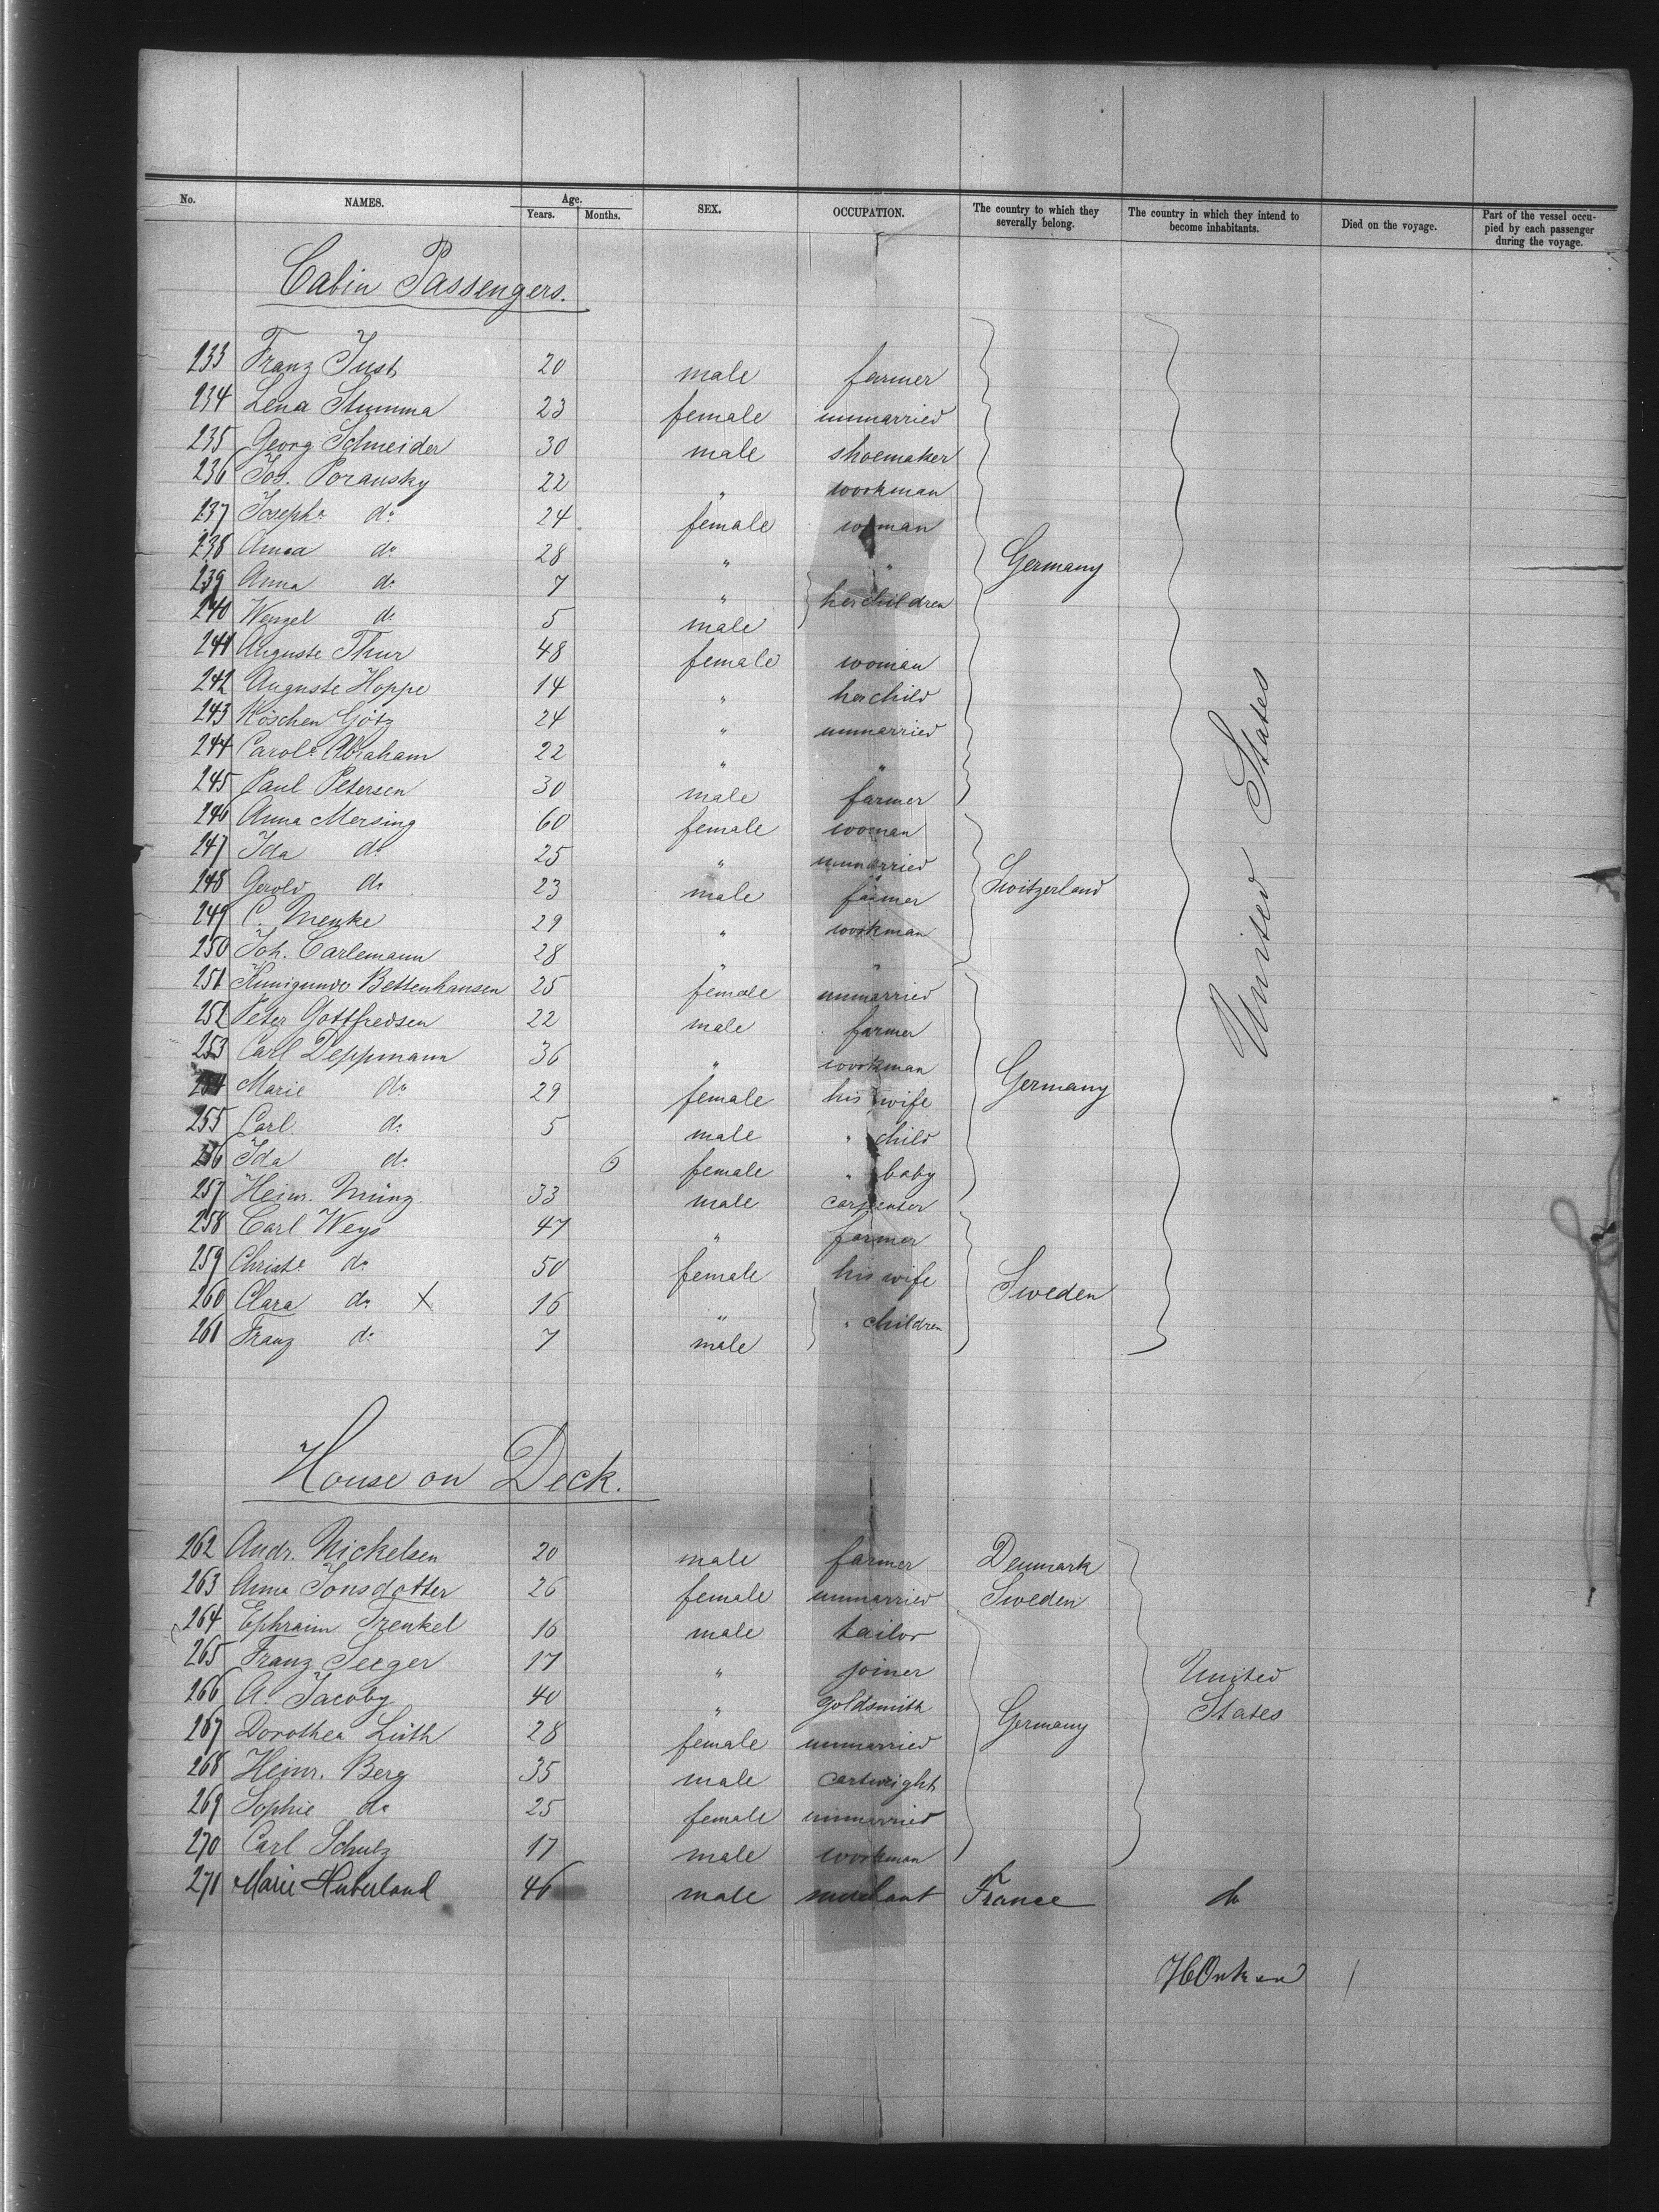 No. NAMES. Age. SEX. OCCUPATION. The country to which they severally belong. The country in which they intend to become inhabitants. Died on the voyage. Part of the vessel occupied by each passenger during the voyage.
Years. Months.
Cabin Passengers.
233 Franz Just 20 male farmer
234 Lena Stumma 23 female unmarried
235 Georg Schneider 30 male shoemaker
236 Jos. Poransky 22 " workman
237 Josepha do 24 female woman
238 Anna do 28 " " Germany
239 Anna do 7 " her children
240 Wenzel do 5 male
241 Auguste Thur 48 female woman
242 Auguste Hoppe 14 " her child
243 Röschen Götz 24 " unmarried
244 Carole Abraham 22 " "
245 Paul Petersen 30 male farmer
246 Anna Mersing 60 female woman
247 Ida do 25 " unmarried
248 Gerold do 23 male farmer Switzerland
249 C. Menke 29 " workman
250 Joh. Carlemann 28 " "
United States
251 Kunigunde Bettenhausen 25 female unmarried
252 Peter Gottfredsen 22 male farmer
253 Carl Deppmann 36 " workman
254 Marie do 29 female his wife Germany
255 Carl do 5 male " child
256 Ida do 6 female " baby
257 Heinr. Münz 33 male carpenter
258 Carl Weys 47 " farmer
259 Christe do 50 female his wife
260 Clara do X 16 " " children Sweden
261 Franz do 7 male
House on Deck.
262 Andr. Nickelsen 20 male farmer Denmark
263 Anna Jonsdotter 26 female unmarried Sweden
264 Ephraim Frenkel 16 male tailor
265 Franz Seeger 17 " joiner United
266 A. Jacoby 40 " goldsmith States
267 Dorothea Lüth 28 female unmarried Germany
268 Heinr. Berg 35 male cartwright
269 Sophie do 25 female unmarried
270 Carl Schulz 17 male workman
271 Marie Huberland 46 male merchant France do